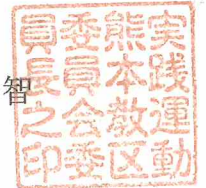 実践運動
熊本教区
委員会委
員長之印
智